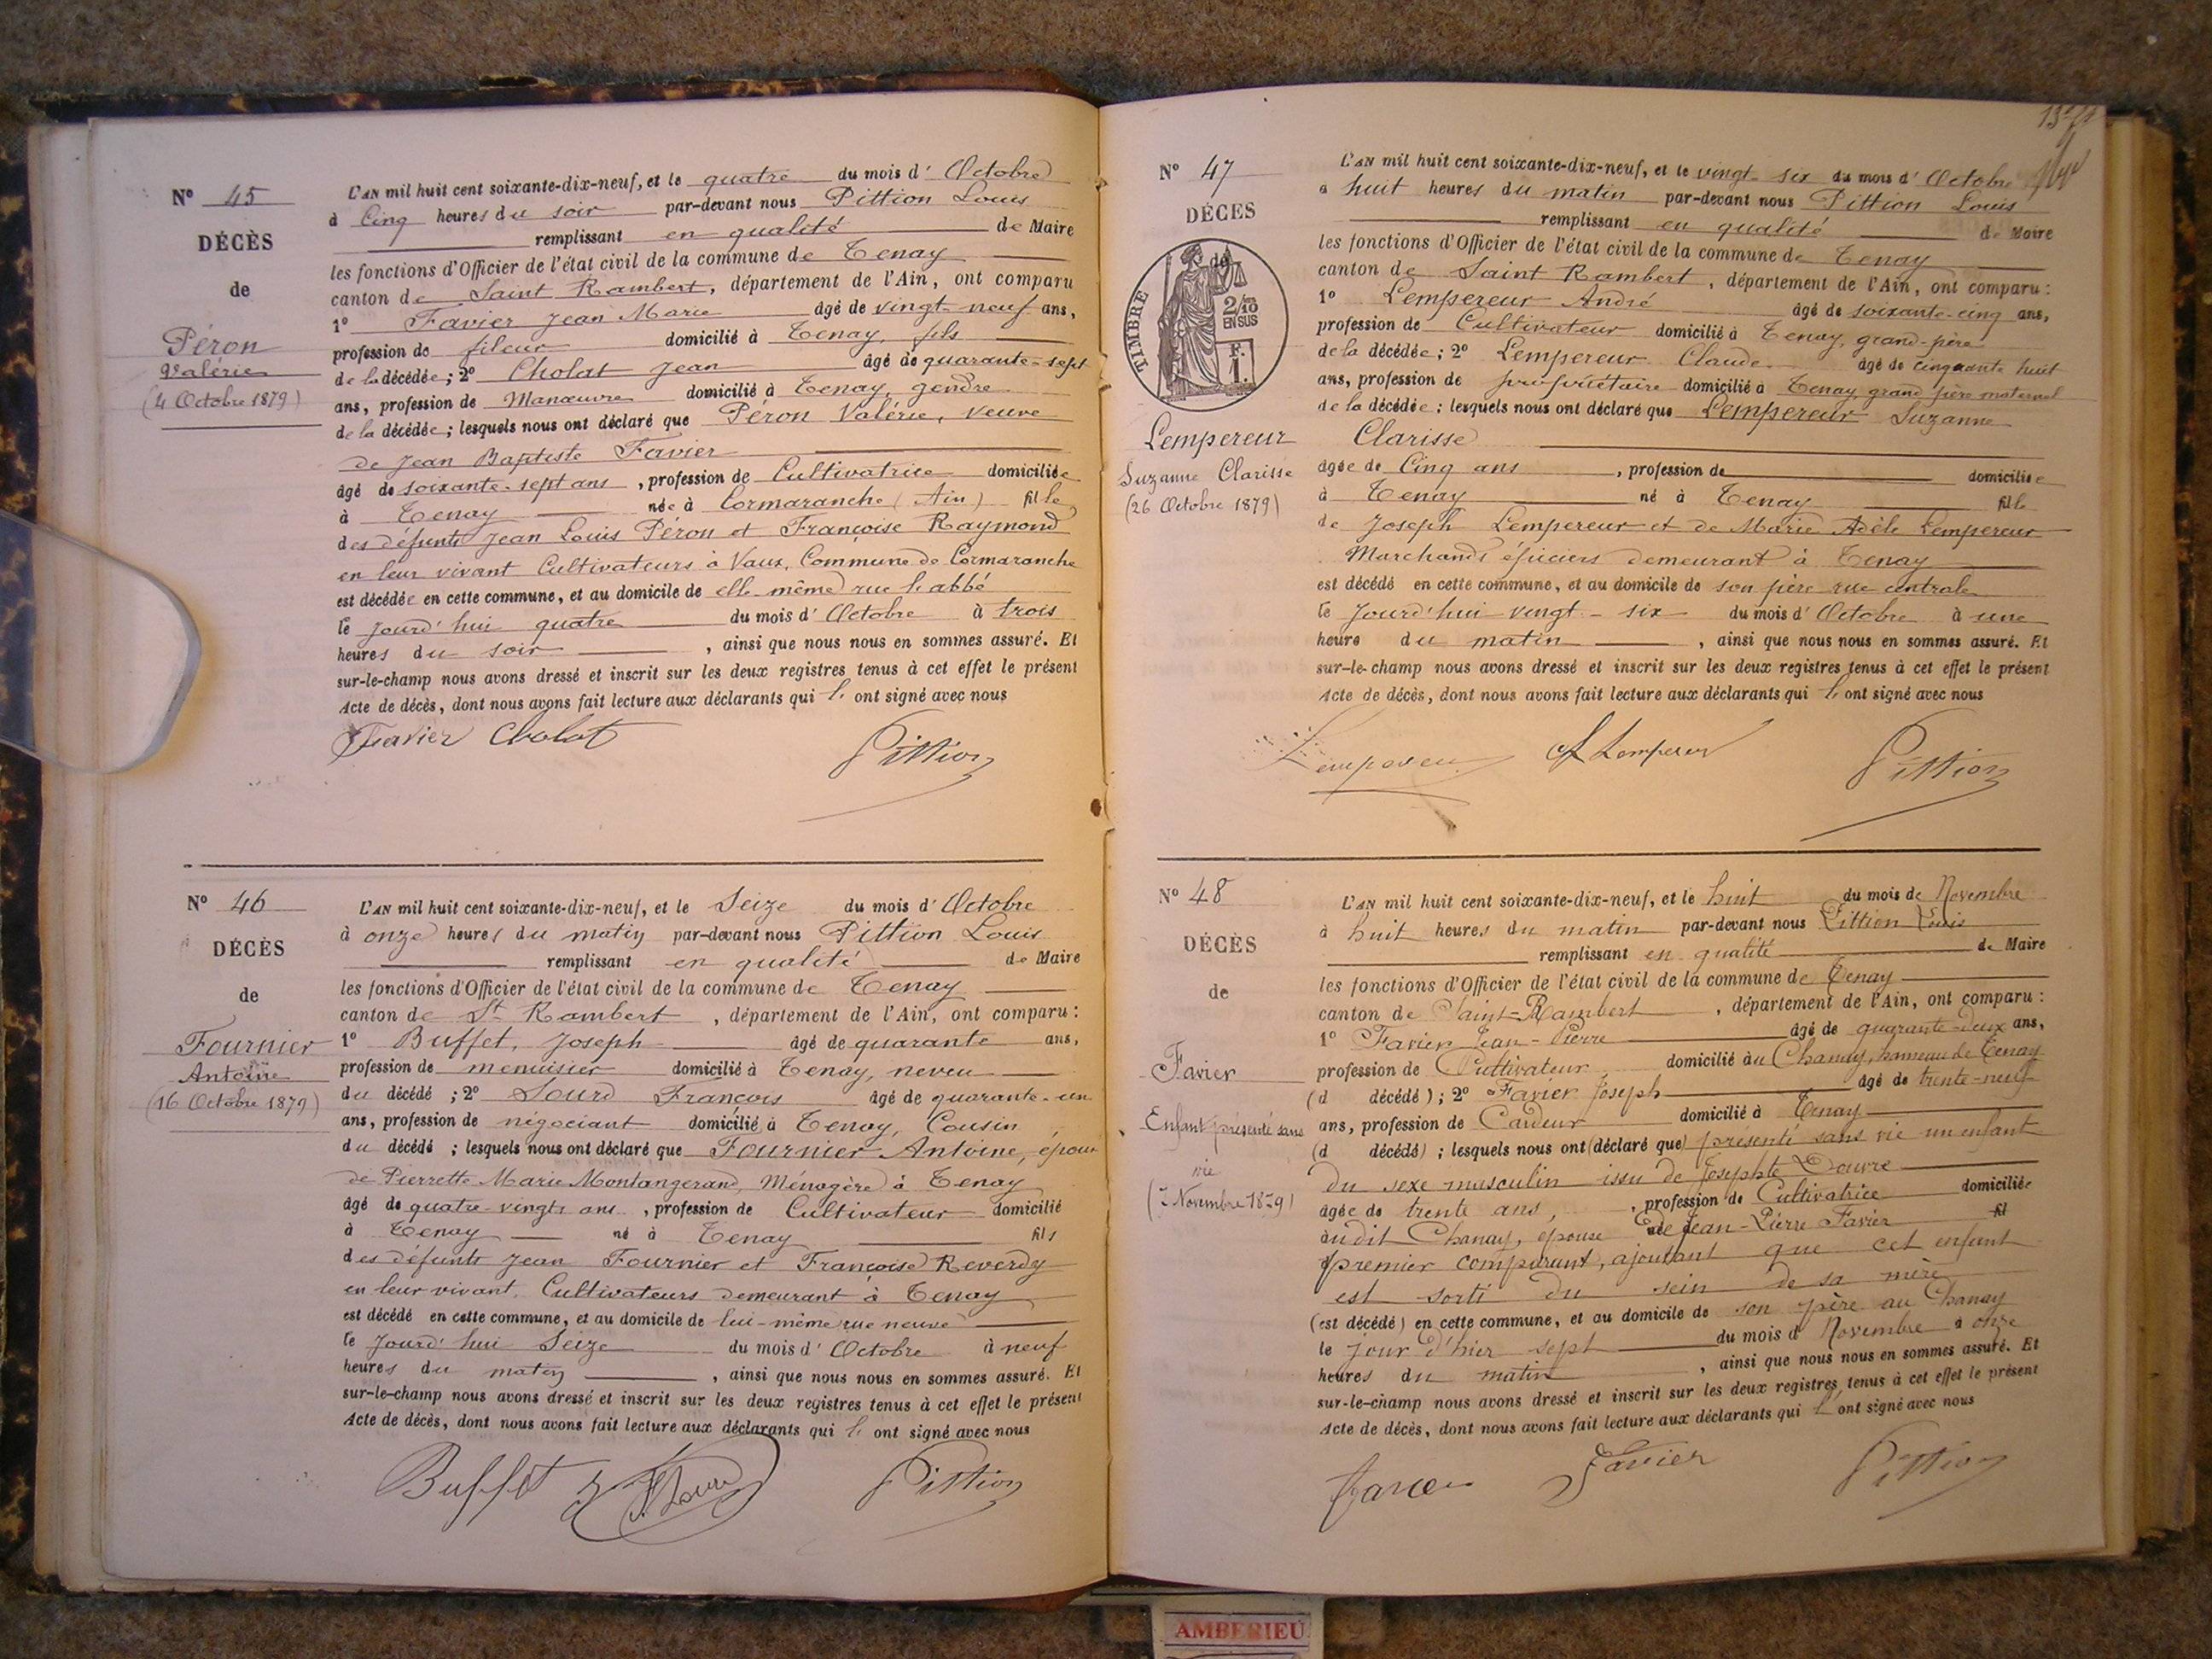 Nº 45
DÉCÈS
de
Péron
Valérie
(4 Octobre 1879)
L'AN mil huit cent soixante-dix-neuf, et le quatre du mois d'Octobre
à Cinq heures du soir par-devant nous Pittion Louis
remplissant en qualité de Maire
les fonctions d'Officier de l'état civil de la commune de Tenay
canton de Saint Rambert, département de l'Ain, ont comparu
1º Favier Jean Marie âgé de vingt-neuf ans,
profession de fileur domicilié à Tenay, fils
de la décédée; 2º Cholat Jean âgé de quarante-sept
ans, profession de Manœuvre domicilié à Tenay, gendre
de la décédée; lesquels nous ont déclaré que Péron Valérie, veuve
de Jean Baptiste Favier
âgé de soixante-sept ans, profession de Cultivatrice domiciliée
à Tenay née à Cormaranche (Ain) fille
des défunts Jean Louis Péron et Françoise Raymond
en leur vivant Cultivateurs à Vaux, Commune de Cormaranche
est décédée en cette commune, et au domicile de elle-même rue l'abbé
le jourd'hui quatre du mois d'Octobre à trois
heures du soir, ainsi que nous nous en sommes assuré. Et
sur-le-champ nous avons dressé et inscrit sur les deux registres tenus à cet effet le présent
Acte de décès, dont nous avons fait lecture aux déclarants qui l' ont signé avec nous
Favier Cholat Pittion
Nº 46
DÉCÈS
de
Fournier
Antoine
(16 Octobre 1879)
L'AN mil huit cent soixante-dix-neuf, et le Seize du mois d'Octobre
à onze heures du matin par-devant nous Pittion Louis
remplissant en qualité de Maire
les fonctions d'Officier de l'état civil de la commune de Tenay
canton de St Rambert, département de l'Ain, ont comparu:
1º Buffet, Joseph âgé de quarante ans,
profession de menuisier domicilié à Tenay, neveu
du décédé; 2º Lourd François âgé de quarante-un
ans, profession de négociant domicilié à Tenay, Cousin
du décédé; lesquels nous ont déclaré que Fournier Antoine, époux
de Pierrette Marie Montangerand, Ménagère à Tenay
âgé de quatre-vingts ans, profession de Cultivateur domicilié
à Tenay né à Tenay fils
des défunts Jean Fournier et Françoise Reverdy
en leur vivant, Cultivateurs demeurant à Tenay
est décédé en cette commune, et au domicile de lui-même rue neuve
le jourd'hui Seize du mois d'Octobre à neuf
heures du matin, ainsi que nous nous en sommes assuré. Et
sur-le-champ nous avons dressé et inscrit sur les deux registres tenus à cet effet le présent
Acte de décès, dont nous avons fait lecture aux déclarants qui l' ont signé avec nous
Buffet Pittion
Nº 47
DÉCÈS
de
TIMBRE
2/10
EN SUS
F.
1.
Lempereur
Suzanne Clarisse
(26 Octobre 1879)
L'AN mil huit cent soixante-dix-neuf, et le vingt-six du mois d'Octobre
à huit heures du matin par-devant nous Pittion Louis
remplissant en qualité de Maire
les fonctions d'Officier de l'état civil de la commune de Tenay
canton de Saint Rambert, département de l'Ain, ont comparu:
1º Lempereur André âgé de soixante-cinq ans,
profession de Cultivateur domicilié à Tenay, grand-père
de la décédée; 2º Lempereur Claude âgé de cinquante huit
ans, profession de propriétaire domicilié à Tenay grand père maternel
de la décédée; lesquels nous ont déclaré que Lempereur Suzanne
Clarisse
âgée de Cinq ans, profession de domiciliée
à Tenay né à Tenay fille
de Joseph Lempereur et de Marie Adèle Lempereur
Marchands épiciers demeurant à Tenay
est décédé en cette commune, et au domicile de son père rue centrale
le jourd'hui vingt-six du mois d'Octobre à une
heure du matin, ainsi que nous nous en sommes assuré. Et
sur-le-champ nous avons dressé et inscrit sur les deux registres tenus à cet effet le présent
Acte de décès, dont nous avons fait lecture aux déclarants qui l' ont signé avec nous
Lempereur Lempereur Pittion
Nº 48
DÉCÈS
de
Favier
Enfant présenté sans
vie
L'AN mil huit cent soixante-dix-neuf, et le huit du mois de Novembre
à huit heures du matin par-devant nous Pittion Louis
remplissant en qualité de Maire
les fonctions d'Officier de l'état civil de la commune de Tenay
canton de Saint-Rambert, département de l'Ain, ont comparu:
1º Favier Jean-Pierre âgé de quarante-deux ans,
profession de Cultivateur domicilié au Chanay, hameau de Tenay
(d décédé); 2º Favier Joseph âgé de trente-neuf
ans, profession de Cardeur domicilié à Tenay
(d décédé); lesquels nous ont (déclaré que) présenté sans vie un enfant
du sexe masculin issu de Josephte
âgée de trente ans, profession de Cultivatrice domiciliée
au dit Chanay, épouse de Jean-Pierre Favier fil
premier comparant, ajoutant que cet enfant
est sorti du sein de sa mère
(est décédé) en cette commune, et au domicile de son père au Chanay
le jour d'hier sept du mois d Novembre à onze
heures du matin, ainsi que nous nous en sommes assuré. Et
sur-le-champ nous avons dressé et inscrit sur les deux registres tenus à cet effet le présent
Acte de décès, dont nous avons fait lecture aux déclarants qui l' ont signé avec nous
Favier Favier Pittion
AMBERIEU